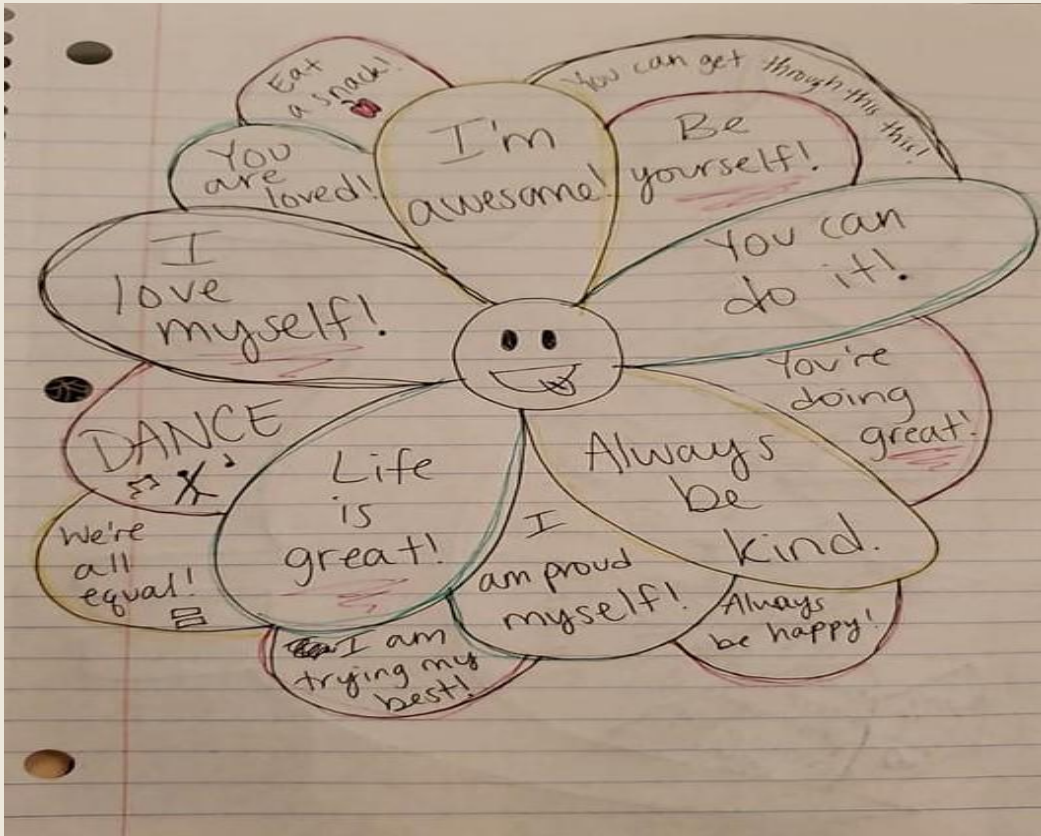 Eat
a snack!
You can get through this this!
I'm
awesome!
Be
yourself!
You
are
loved!
You can
do it!
I
love
myself!
You're
doing
great!
DANCE
Life
is
great!
Always
be
kind.
We're
all
equal!
I
am proud
myself!
Always
be happy!
I am
trying my
best!